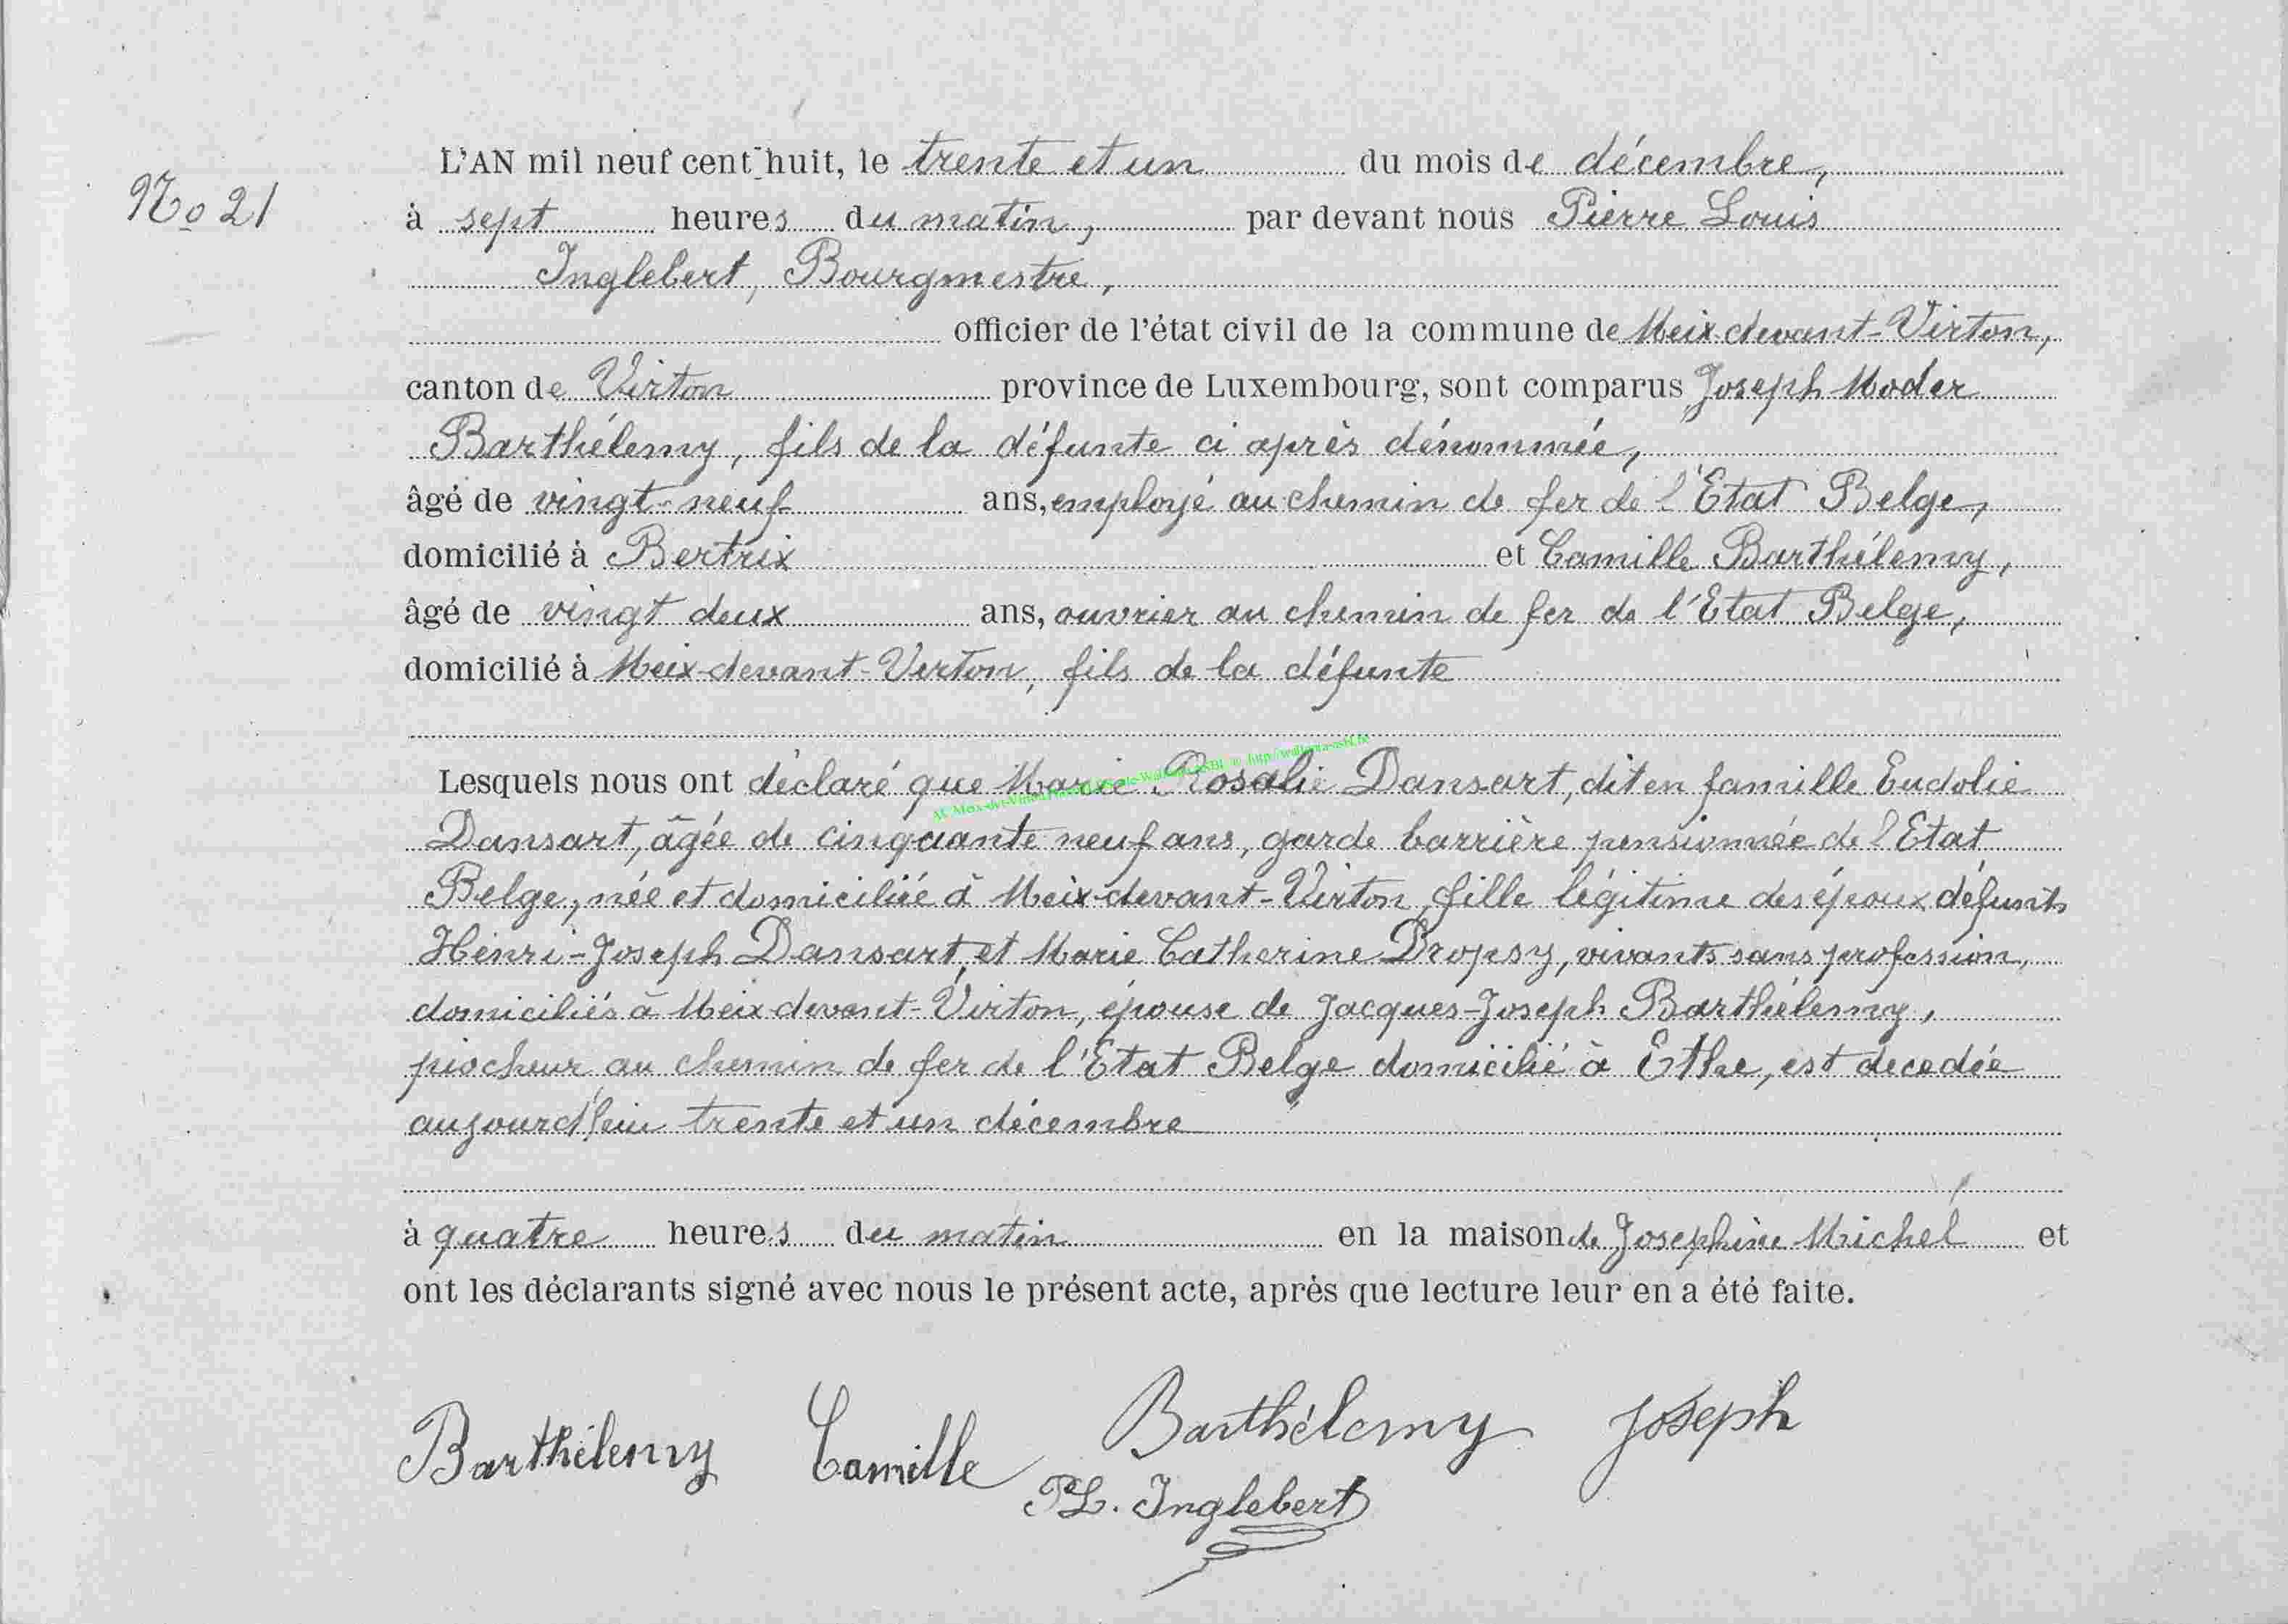 No 21
L'AN mil neuf cent huit, le trente et un du mois de décembre,
à sept heures du matin, par devant nous Pierre Louis
Inglebert, Bourgmestre,
officier de l'état civil de la commune de Meix-devant-Virton,
canton de Virton province de Luxembourg, sont comparus Joseph Moder
Barthélemy, fils de la défunte ci après dénommée,
âgé de vingt-neuf ans, employé au chemin de fer de l'Etat Belge,
domicilié à Bertrix et Camille Barthélemy,
âgé de vingt deux ans, ouvrier au chemin de fer de l'Etat Belge,
domicilié à Meix-devant-Virton, fils de la défunte
Lesquels nous ont déclaré que Marie Rosalie Dansart, dit en famille Eudolie
Dansart, âgée de cinquante neuf ans, garde barrière pensionnée de l'Etat
Belge, née et domiciliée à Meix-devant-Virton, fille légitime des époux défunts
Henri-Joseph Dansart, et Marie Catherine Dropsy, vivants sans profession,
domiciliés à Meix-devant-Virton, épouse de Jacques-Joseph Barthélemy,
piocheur au chemin de fer de l'Etat Belge domicilié à Ethe, est decedée
aujourd'hui trente et un décembre
à quatre heures du matin en la maison de Josephine Michel et
ont les déclarants signé avec nous le présent acte, après que lecture leur en a été faite.
Barthélemy Camille Barthélemy Joseph
PL. Inglebert